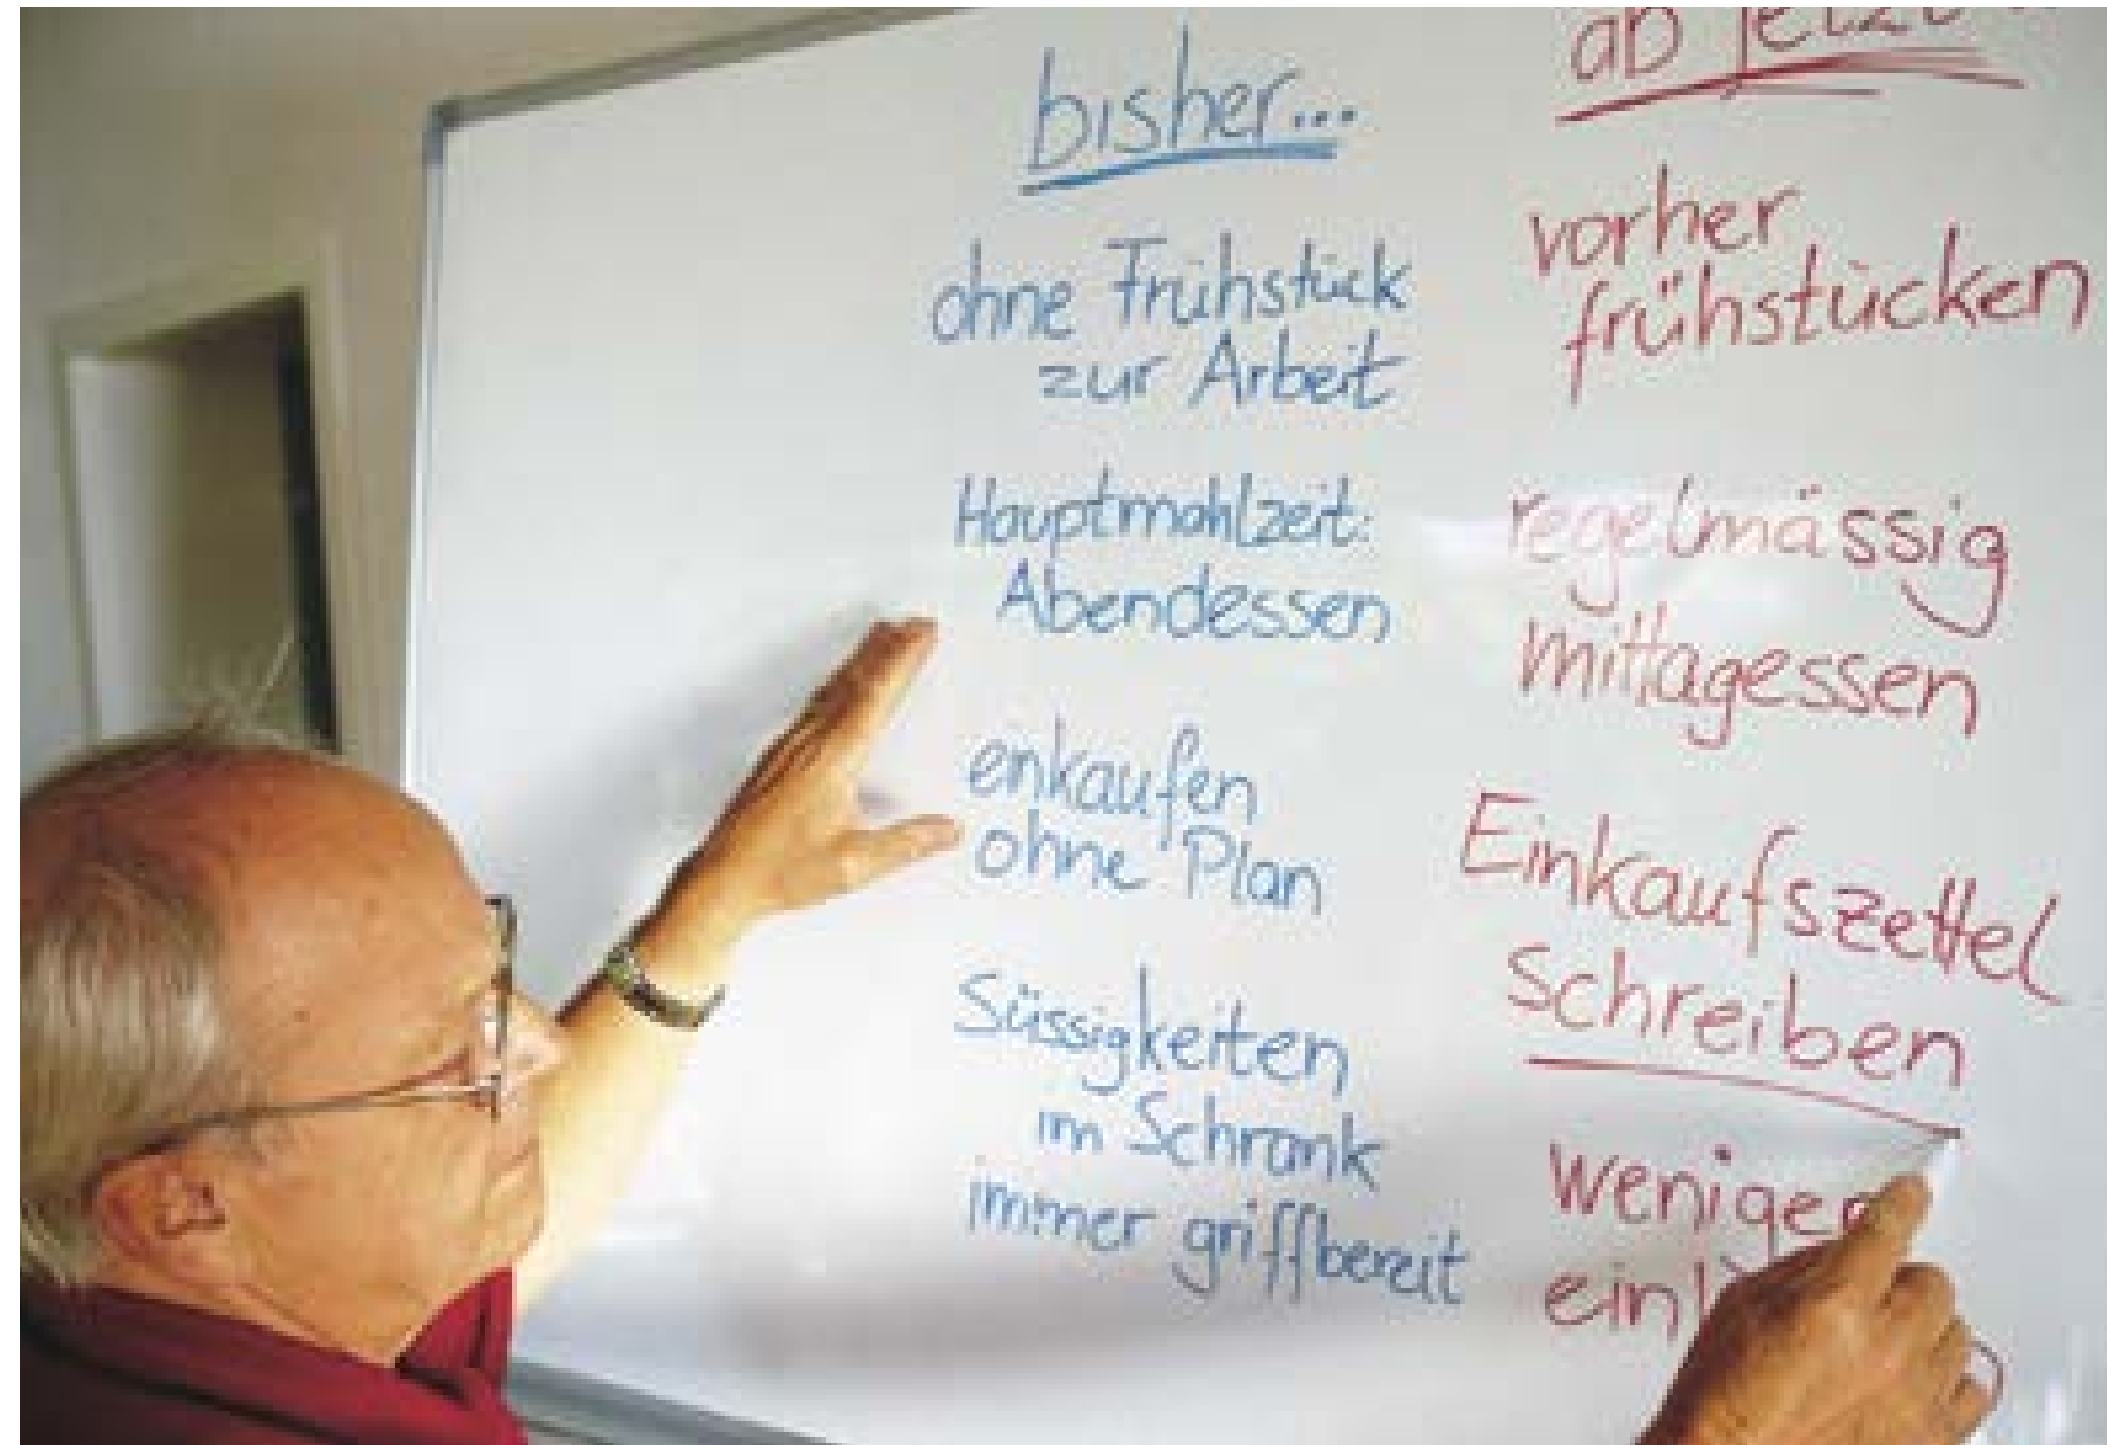 bisher...
ohne Frühstück
zur Arbeit
Hauptmahlzeit:
Abendessen
einkaufen
ohne Plan
Süssigkeiten
im Schrank
immer griffbereit
ab jetzt
vorher
frühstücken
regelmässig
mittagessen
Einkaufszettel
schreiben
weniger